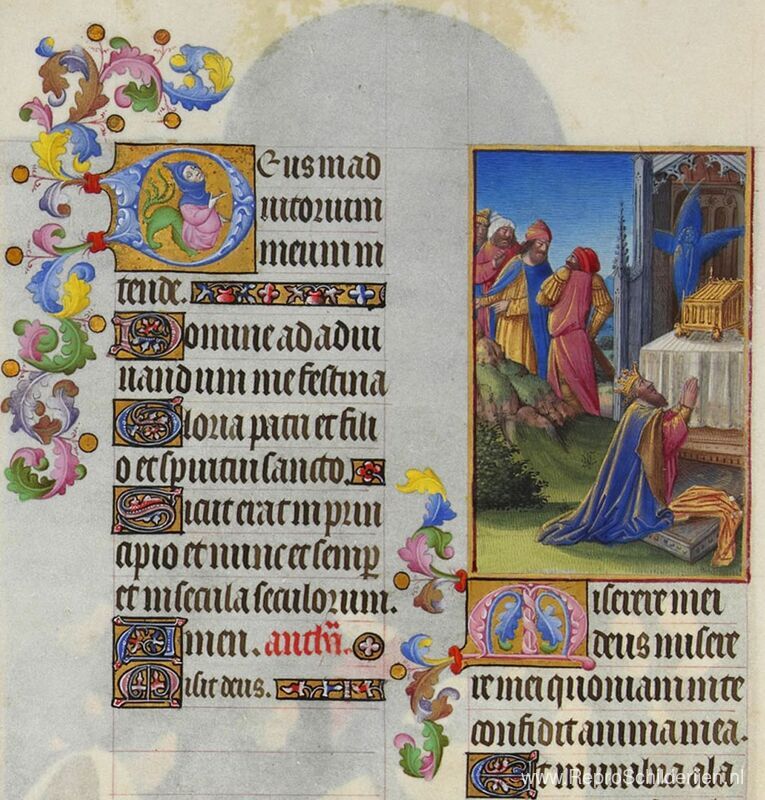 Deus in ad
iutorium
meum in
tende.
Domine ad adiu
vandum me festina
Gloria patri et fili
o et spiritui sancto.
Sicut erat in prin
cipio et nunc et semp
et in secula seculorum.
Amen. anth̄.
Misit deus.
Miserere mei
deus misere
re mei quoniam in te
confidit anima mea.
Et in umbra ala
www.ReproSchilderijen.nl